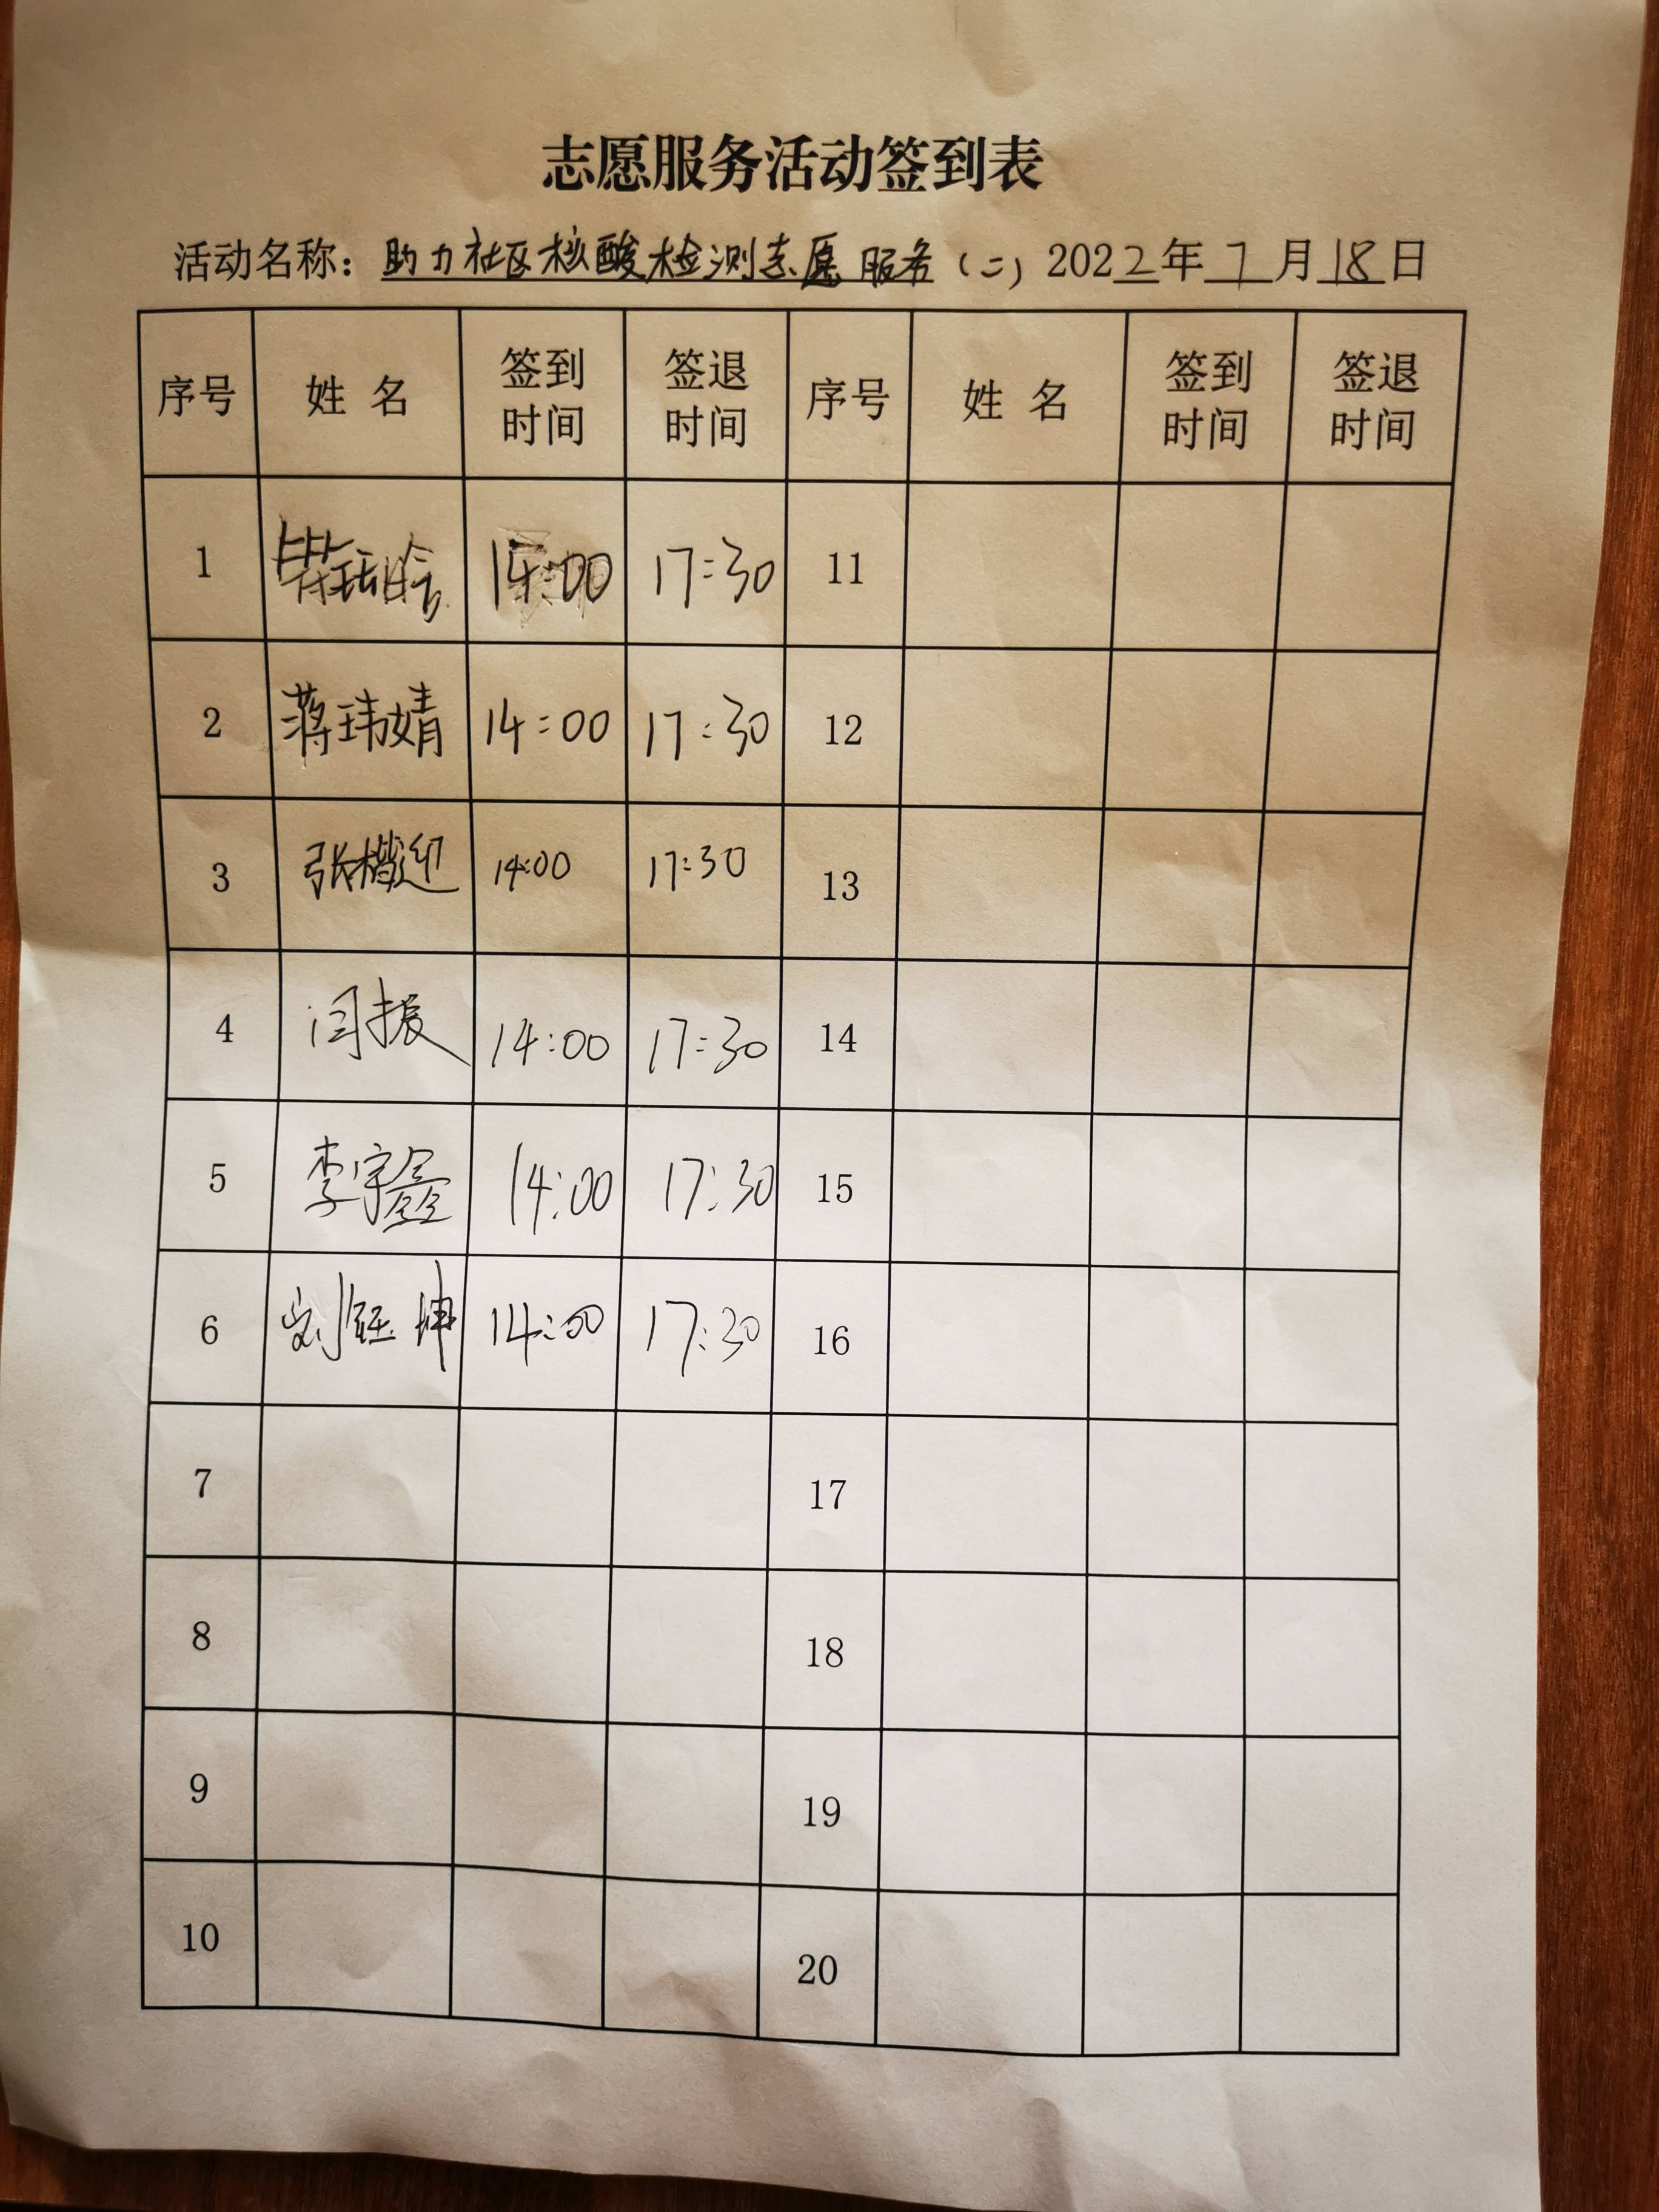 志愿服务活动签到表
活动名称：助力社区核酸检测志愿服务（二）2022年7月18日
序号 姓名 签到时间 签退时间 序号 姓名 签到时间 签退时间
1 14:00 17:30 11
2 蒋玮婧 14:00 17:30 12
3 张楷迎 14:00 17:30 13
4 闫振 14:00 17:30 14
5 李宇鑫 14:00 17:30 15
6 刘钰坤 14:00 17:30 16
7 17
8 18
9 19
10 20